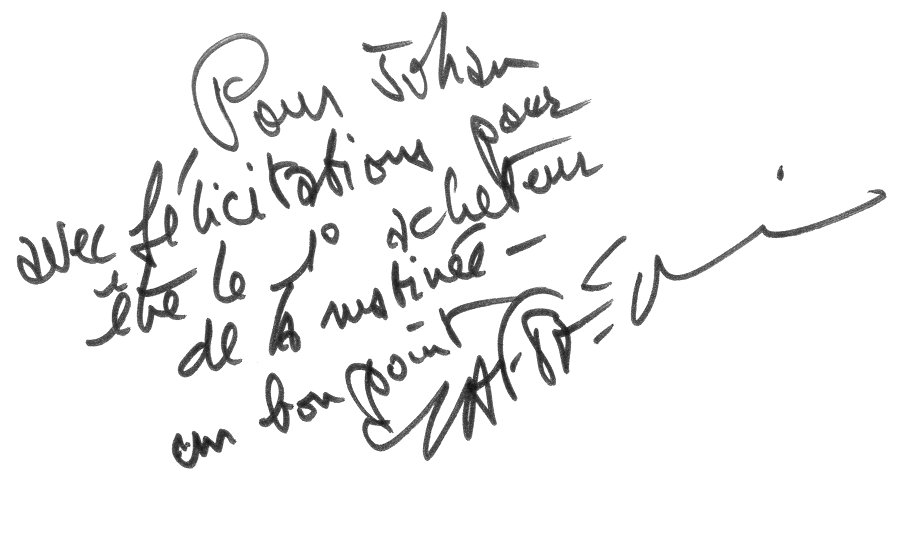 Pour Johan
avec félicitations pour
être le 1° acheteur
de la matinée –
un bon point